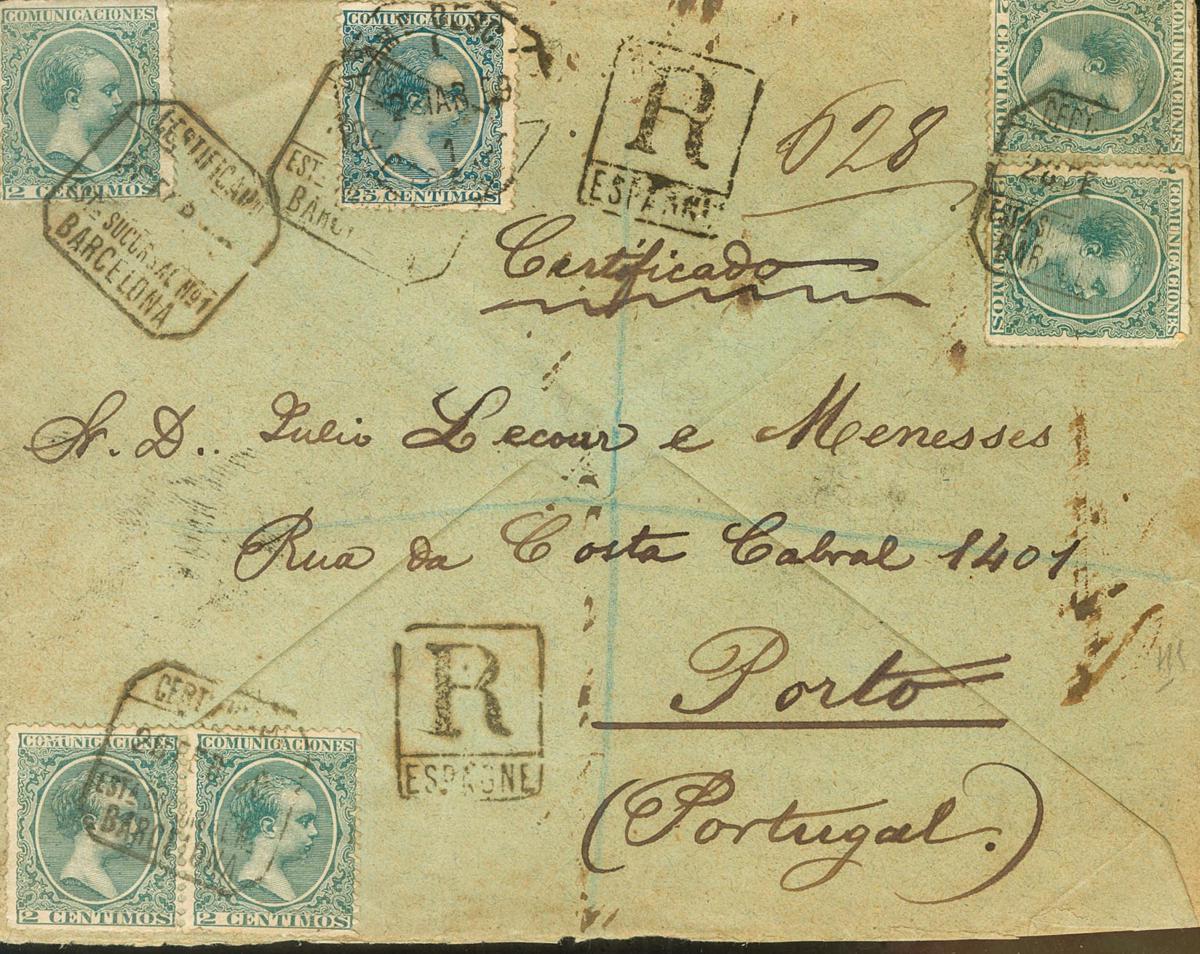 COMUNICACIONES
2 CENTIMOS
COMUNICACIONES
25 CENTIMOS
2 CENTIMOS
COMUNICACIONES
COMUNICACIONES
CERTIFICADO
ESTª SUCURSAL Nº1
BARCELONA
R
ESPAGNE
628
Certificado
Sr. D. Julio Lecour e Menesses
Rua da Costa Cabral 1401
Porto
(Portugal.)
R
ESPAGNE
COMUNICACIONES
2 CENTIMOS
COMUNICACIONES
2 CENTIMOS
BARCELONA